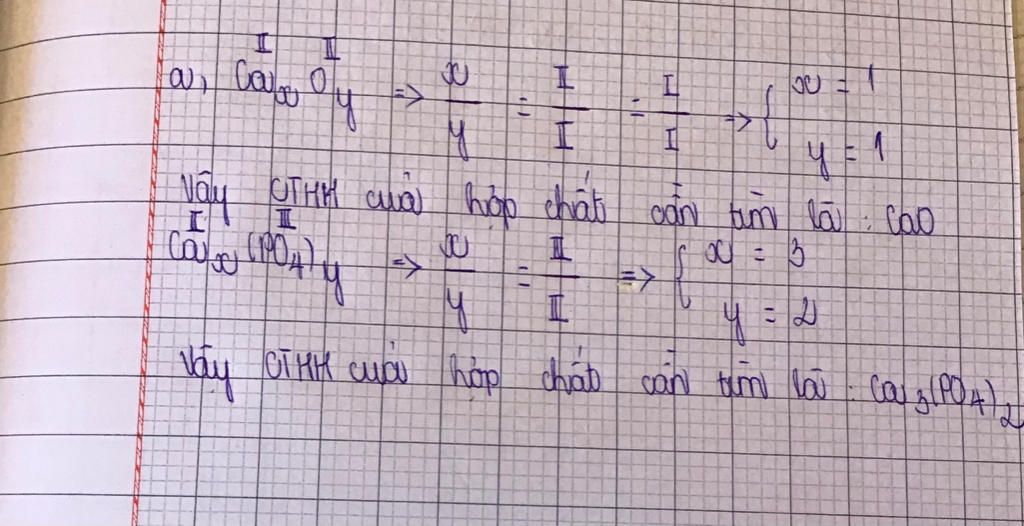 II II
a, CaxOy => x/y = II/II = I/I => { x = 1 y = 1
Vậy CTHH của hợp chất cần tìm là : CaO
II III
Cax(PO4)y => x/y = III/II => { x = 3 y = 2
Vậy CTHH của hợp chất cần tìm là : Ca3(PO4)2